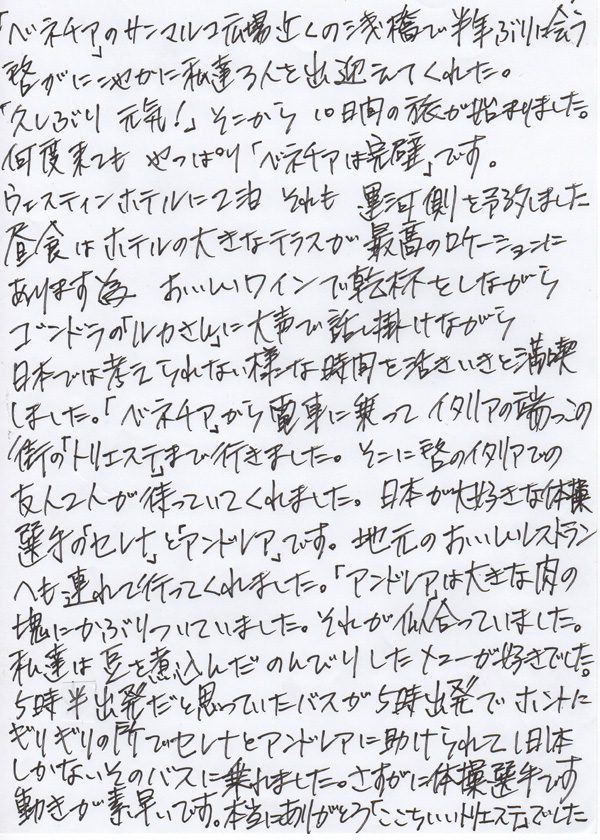 「ベネチア」のサンマルコ広場近くの浅橋で半年ぶりに会う
啓がにこやかに私達3人を出迎えてくれた。
「久しぶり 元気!」そこから 10日間の旅が始まりました。
何度来ても やっぱり「ベネチアは完璧」です。
ウェスティンホテルに2泊 それも 運河側を予約しました
昼食はホテルの大きなテラスが最高のロケーションに
あります為 おいしいワインで乾杯をしながら
ゴンドラの「ルカさん」に大声で話し掛けながら
日本では考えられない様な時間を活きいきと満喫
しました。「ベネチア」から電車に乗って イタリアの端っこの
街の「トリエステ」まで行きました。そこに啓のイタリアでの
友人2人が待っていてくれました。日本が大好きな体操
選手の「セレナ」と「アンドレア」です。地元のおいしいレストラン
へも連れて行ってくれました。「アンドレア」は大きな肉の
塊にかぶりついていました。それが似合っていました。
私達は豆を煮込んだのんびりしたメニューが好きでした。
5時半出発だと思っていたバスが5時出発でホントに
ギリギリの所でセレナとアンドレアに助けられて1日1本
しかないそのバスに乗れました。さすがに体操選手です
動きが素早いです。本当にありがとう「ここちいいトリエステ」でした